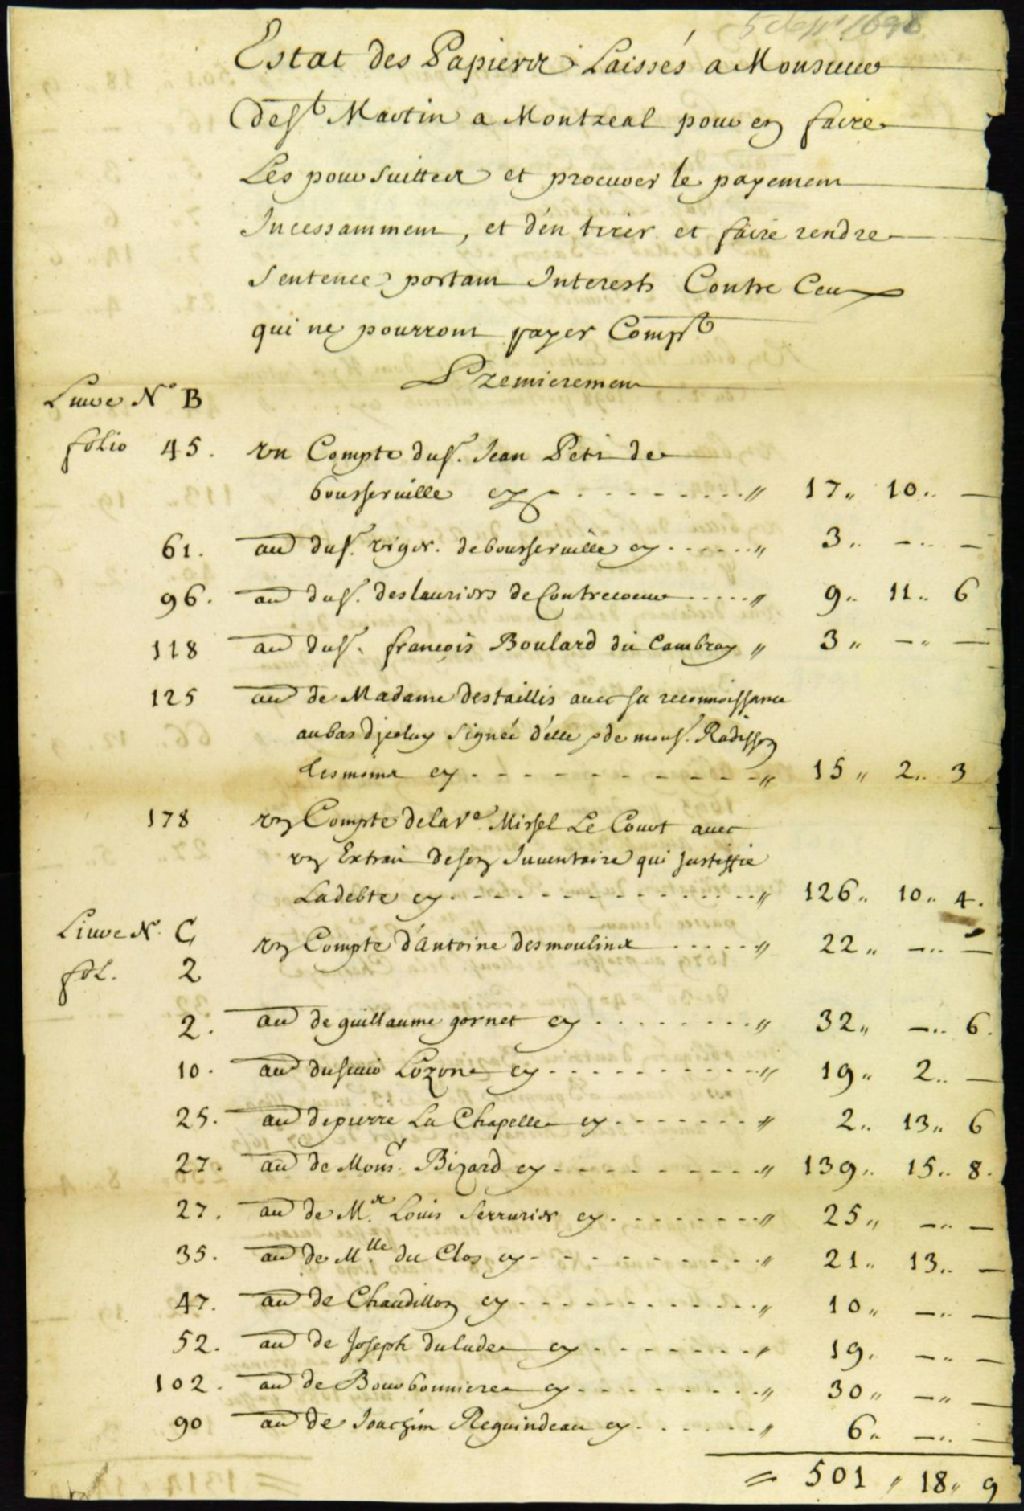 5 Sept 1698
Estat des Papiers Laissés a Monsieur
de St Martin a Montreal pour en faire
Les poursuittes et procurer le payement
Incessamment, et d'en tirer et faire rendre
Sentence portant Interests Contre Ceux
qui ne pourront payer Compt
Premierement
Livre No B
folio 45. un Compte du Sr. Jean Petit de
bousserville cy . . . . . . . . . " 17 " 10 " —
61. aud du Sr. viger. de bousserville cy . . . . . . " 3 " — " —
96. aud du Sr. deslauriers de Contrecoeur . . . . " 9 " 11 " 6
118 aud du Sr. françois Boulard dit Cambray " 3 " — " —
125 aud de Madame destaillis avec sa reconnoissance
au bas d'jceluy signée d'elle de mons. Radisson
tesmoins cy . . . . . . . . . . . " 15 " 2 " 3
178 un Compte de la Ve Missel Le Court avec
un Extrait de son Inventaire qui justiffie
La debte cy . . . . . . . . . . . . . " 126 " 10 " 4.
Livre No. C
fol. 2 un Compte d'antoine desmoulins . . . . . " 22 " — " —
2. aud de guillaume gornet cy . . . . . . . . " 32 " — " 6.
10. aud du Lozon cy . . . . . . . . . . " 19 " 2 " —
25. aud de pierre La Chapelle cy . . . . . . . " 2 " 13 " 6
27. aud de Monsr. Bizard cy . . . . . . . . . " 139 " 15 " 8.
27. aud de Mr. Louis Serrurier cy . . . . . . . " 25 " — " —
35. aud de Mlle du Clos cy . . . . . . . . . . " 21 " 13 " —
47. aud de Chaudillon cy . . . . . . . . . . . " 10 " — " —
52. aud de Joseph dulude cy . . . . . . . . " 19 " — " —
102. aud de Bourbonniere cy . . . . . . . . " 30 " — " —
90 aud de Joachim Reguindeau cy . . . . . . " 6 " — " —
= 501 " 18 " 9